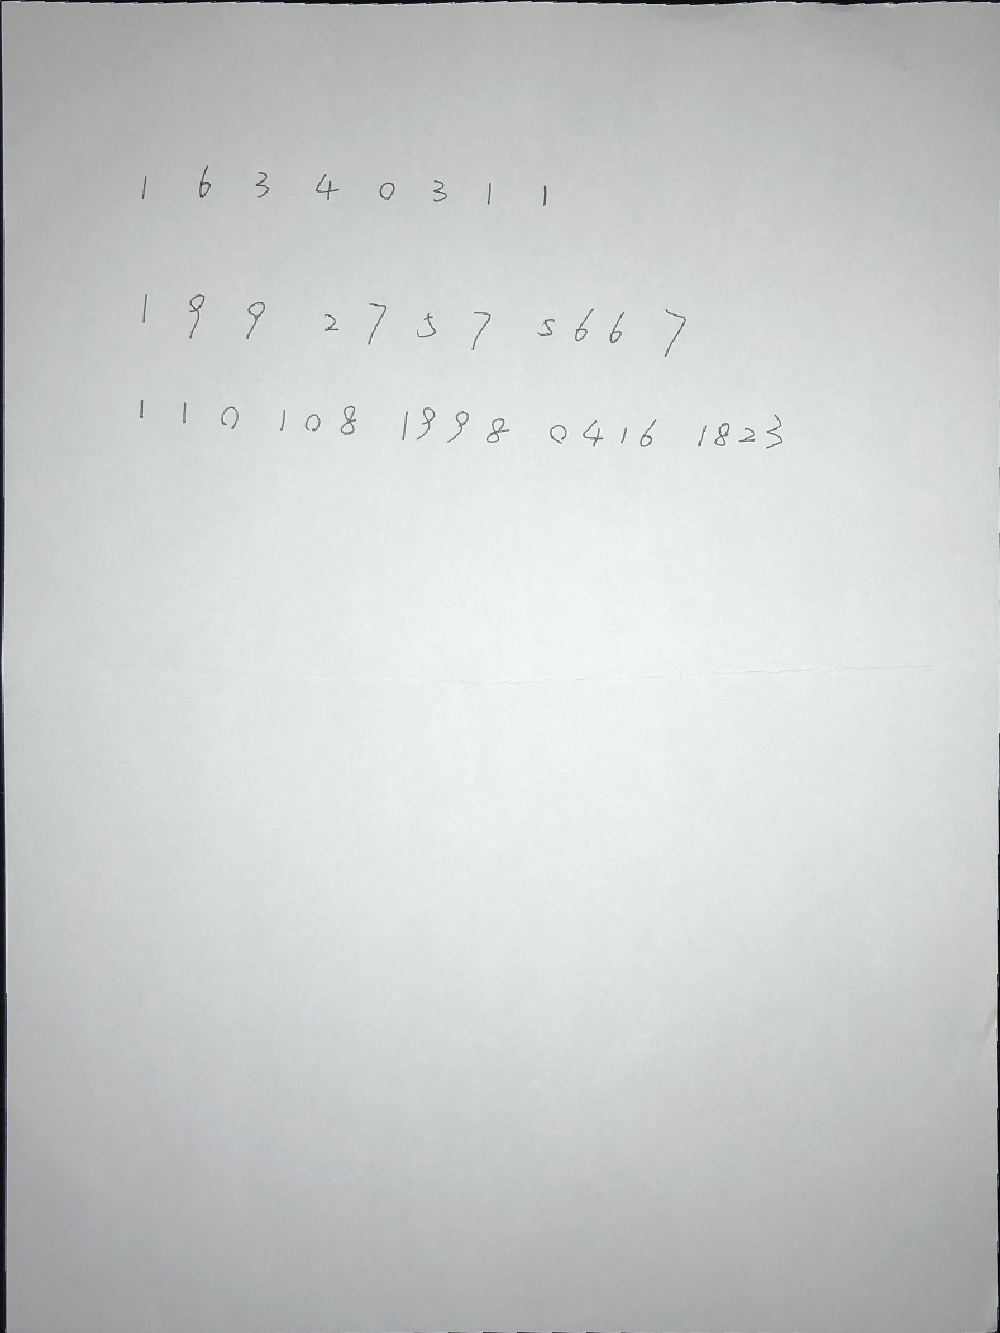 1 6 3 4 0 3 1 1
1 9 9 2 7 5 7 5 6 6 7
1 1 0 1 0 8 1998 0416 1823